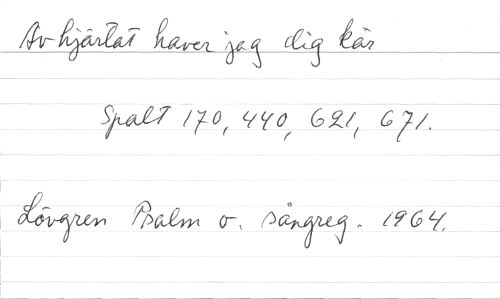 Av hjärtat haver jag dig kär
Spalt 170, 440, 621, 671.
Lövgren Psalm o. sångreg. 1964.